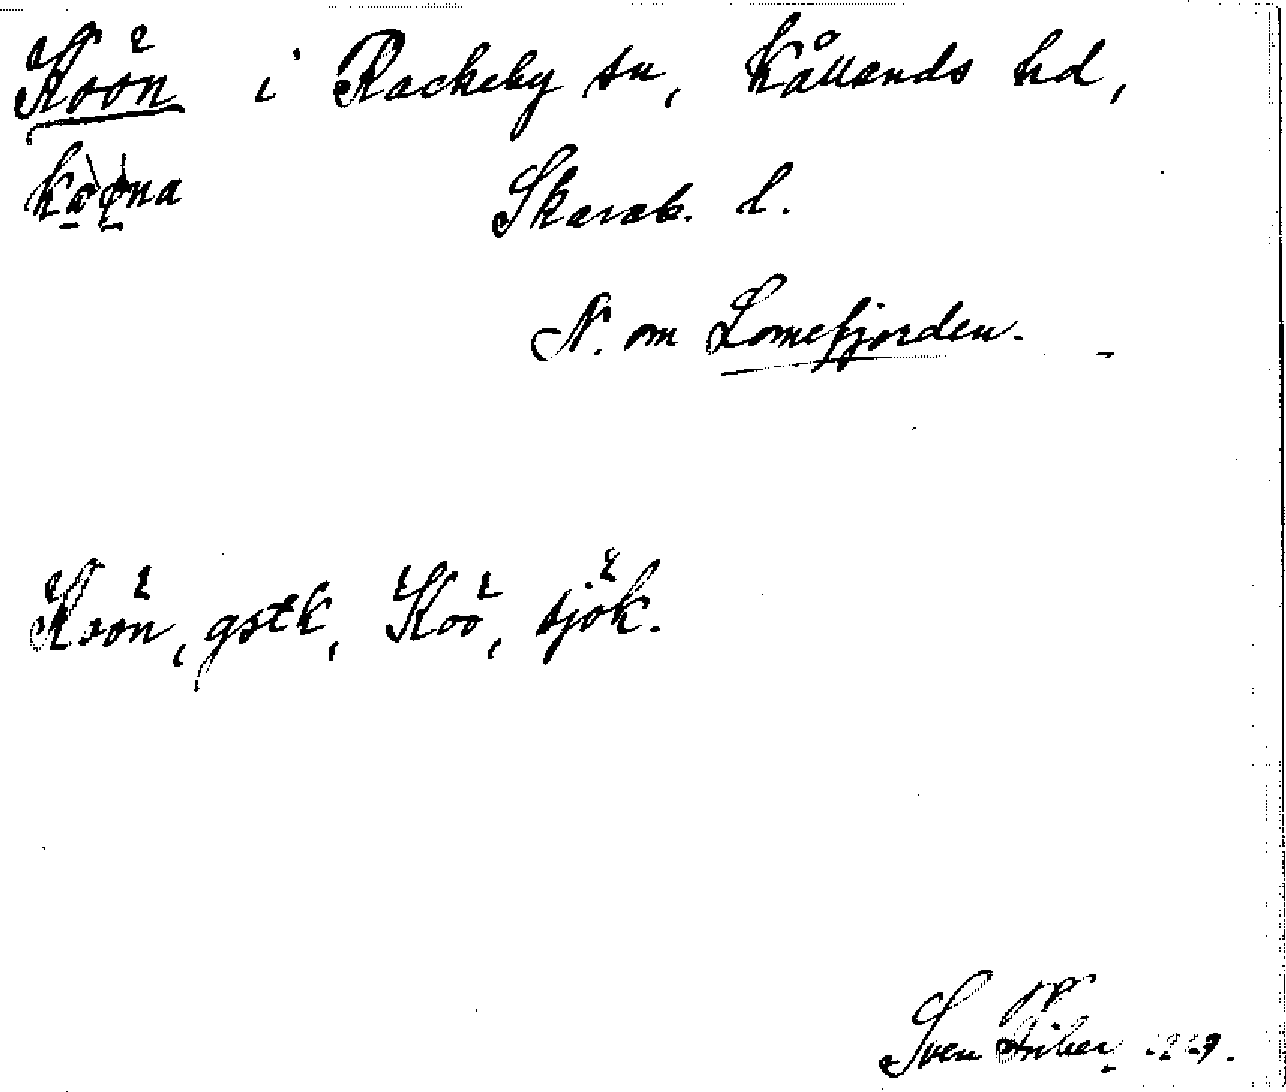 Koön i Rackeby sn, Kållands hd,
Skarab. l.
N. om Lomefjorden.
Koön, gstk, Koö, sjök.
Sven